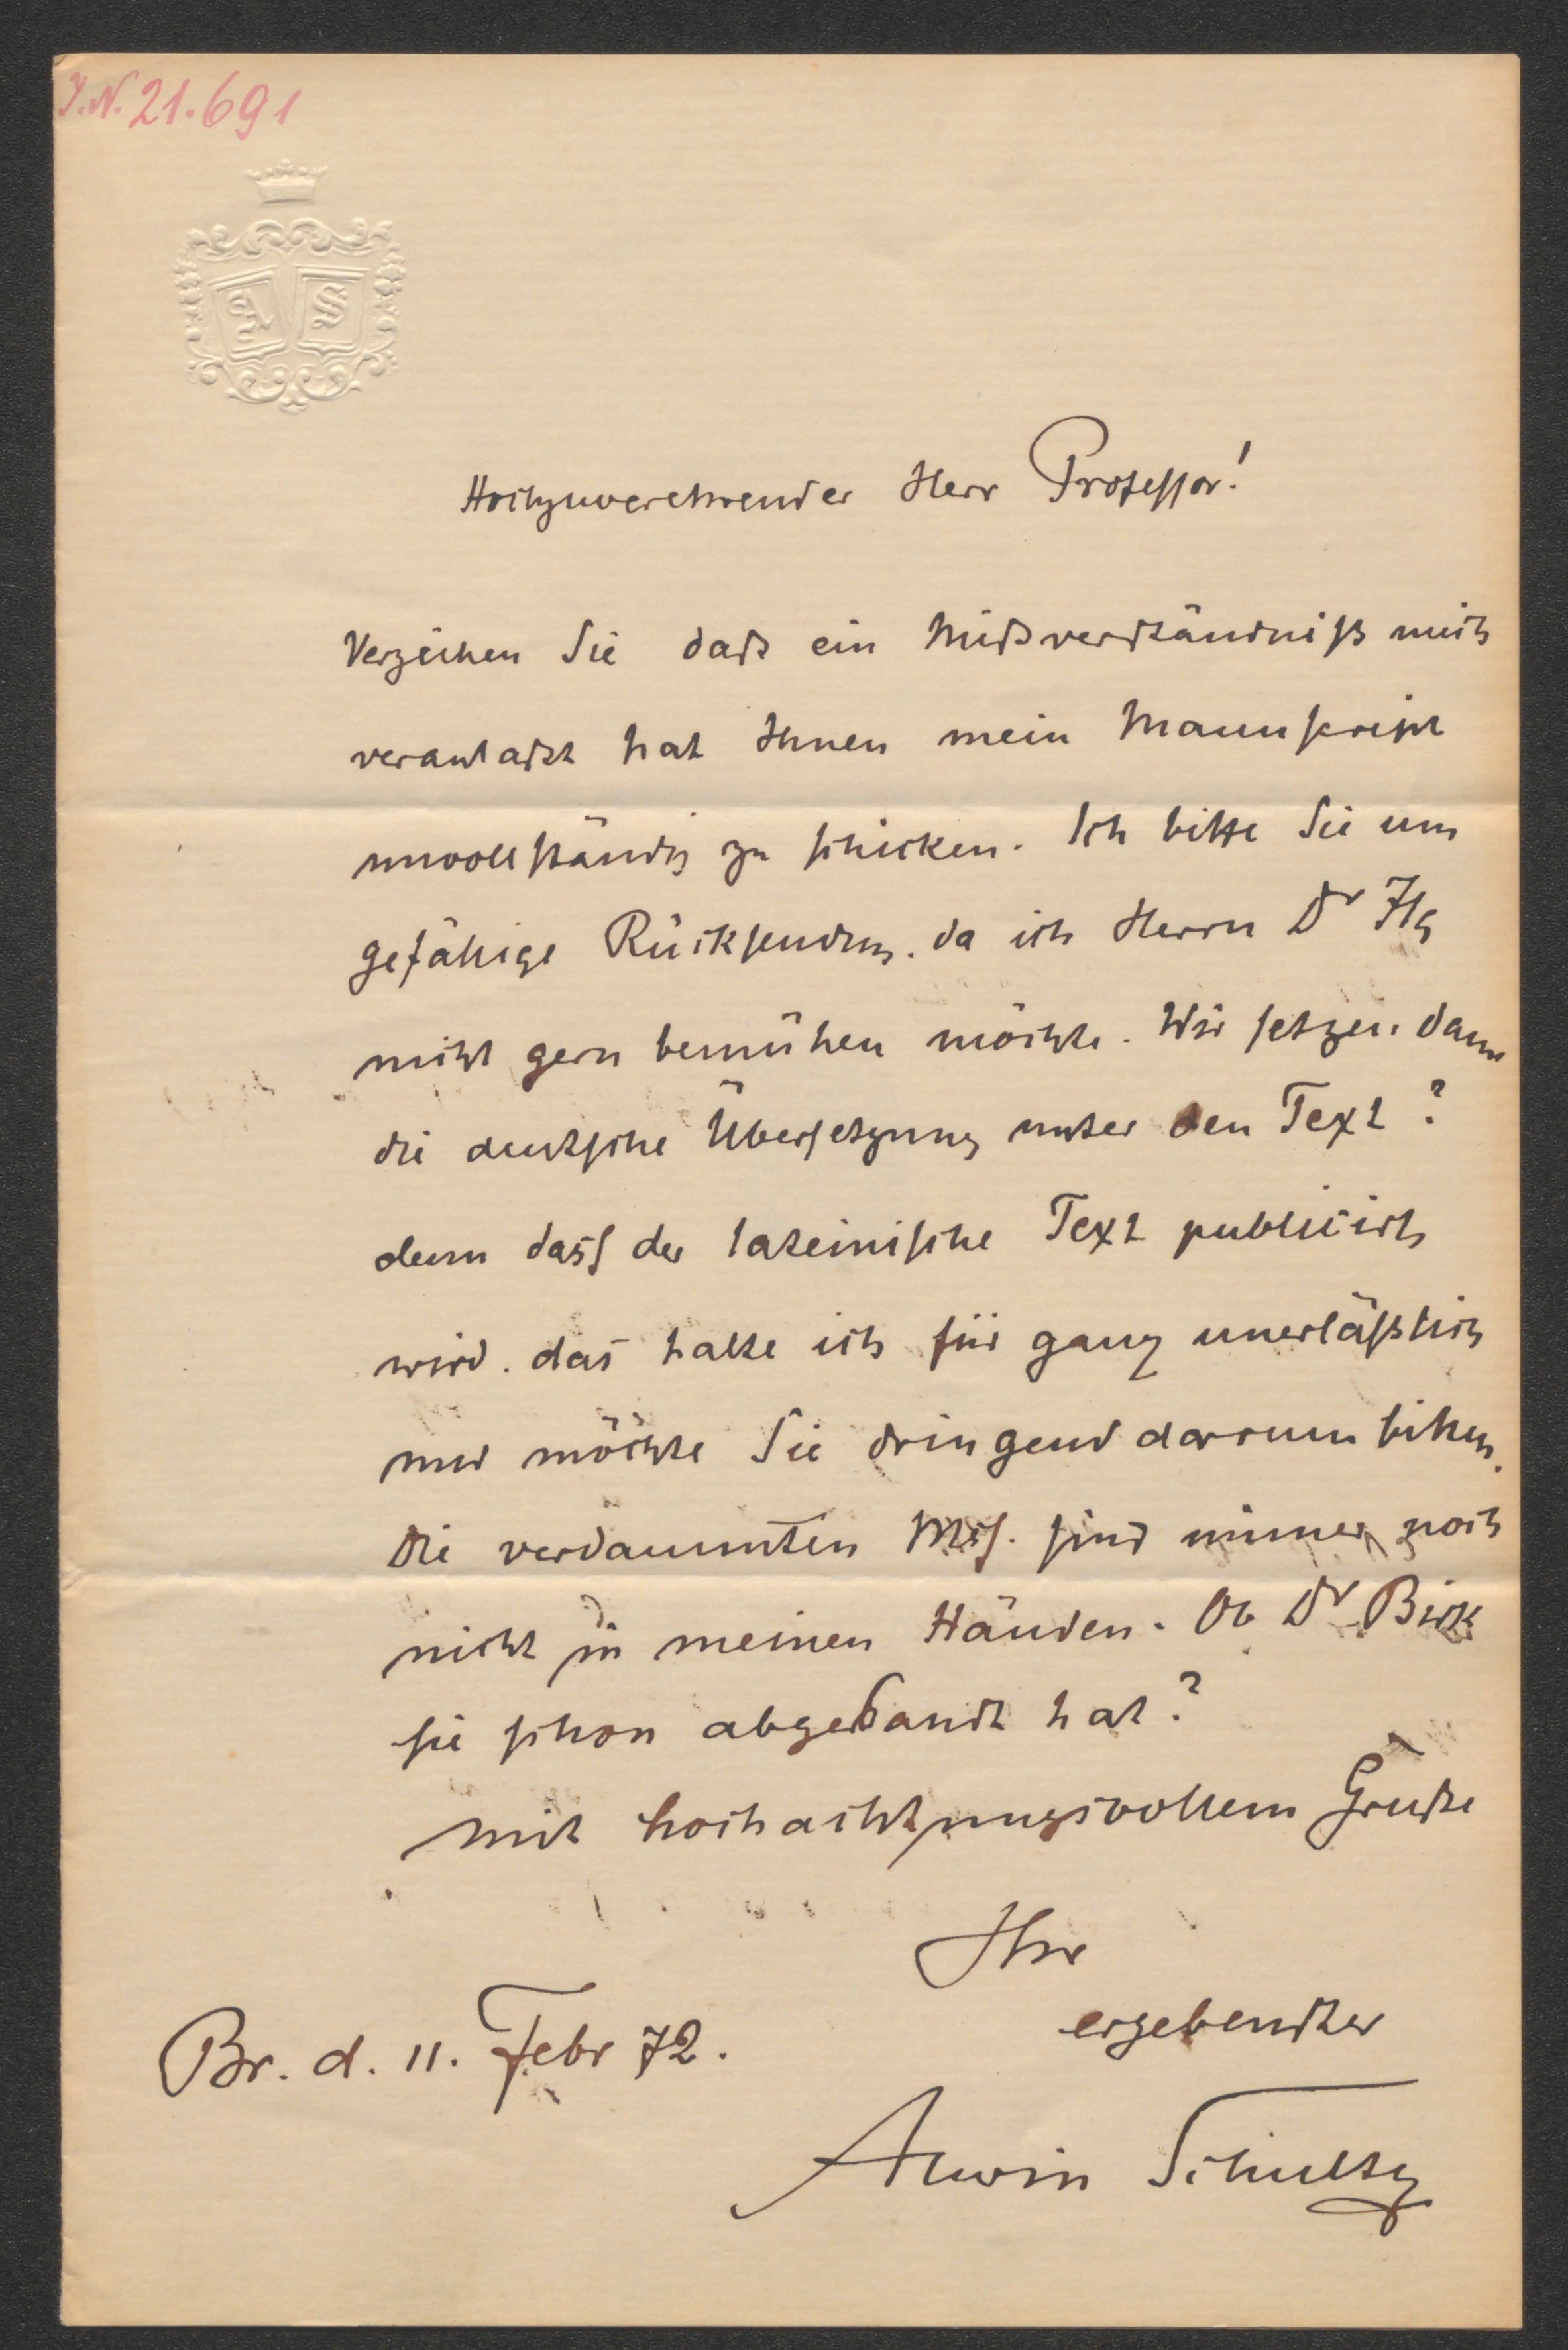 I.N. 21.691
A S
Hochzuverehrender Herr Professor!
Verzeihen Sie daß ein Mißverständniß mich
veranlaßt hat Ihnen mein Manuskript
unvollständig zu schicken. Ich bitte Sie um
gefällige Rücksendung. da ich Herrn Dr Ilg
nicht gern bemühen möchte. Wir setzen dann
die deutsche Übersetzung unter den Text?
denn dass der lateinische Text publicirt
wird. das halte ich für ganz unerläßlich
und möchte Sie dringend darum bitten.
Die verdammten Mss. sind immer noch
nicht in meinen Händen. Ob Dr Birk
sie schon abgesandt hat?
Mit hochachtungsvollem Gruße
Ihr
ergebenster
Br. d. 11. Febr 72.
Alwin Schultz